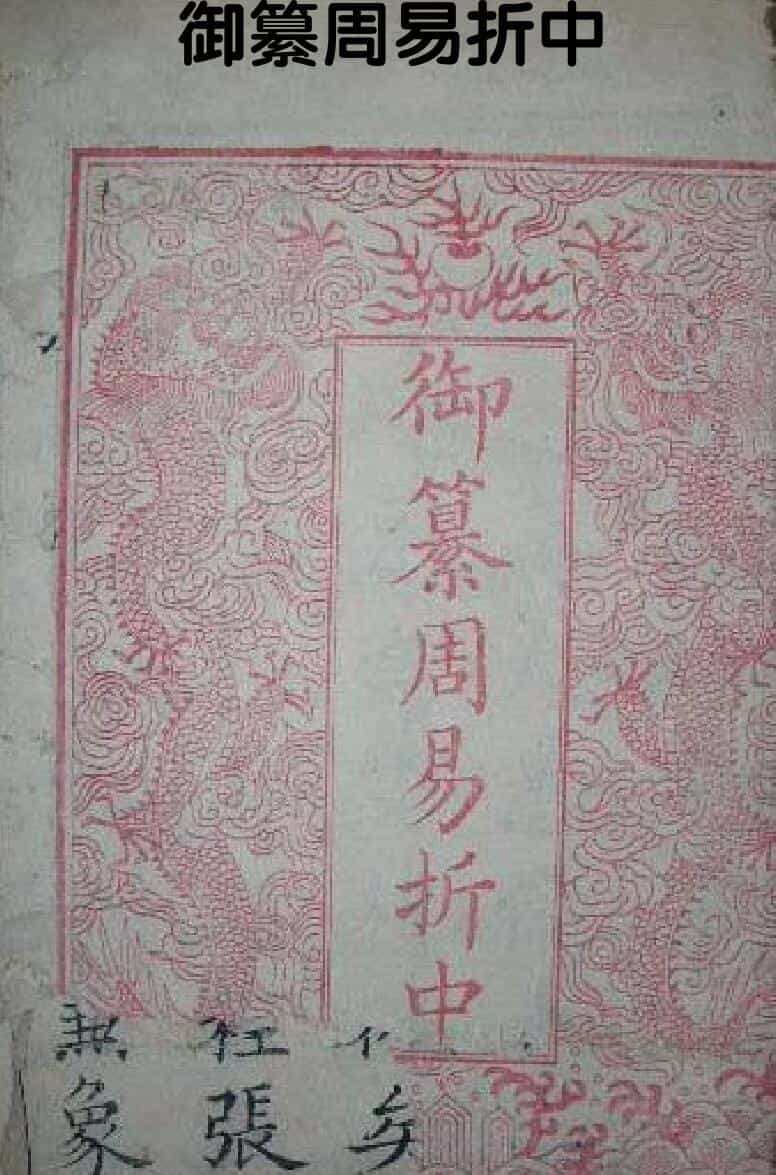 御纂周易折中
御纂周易折中
無象
張